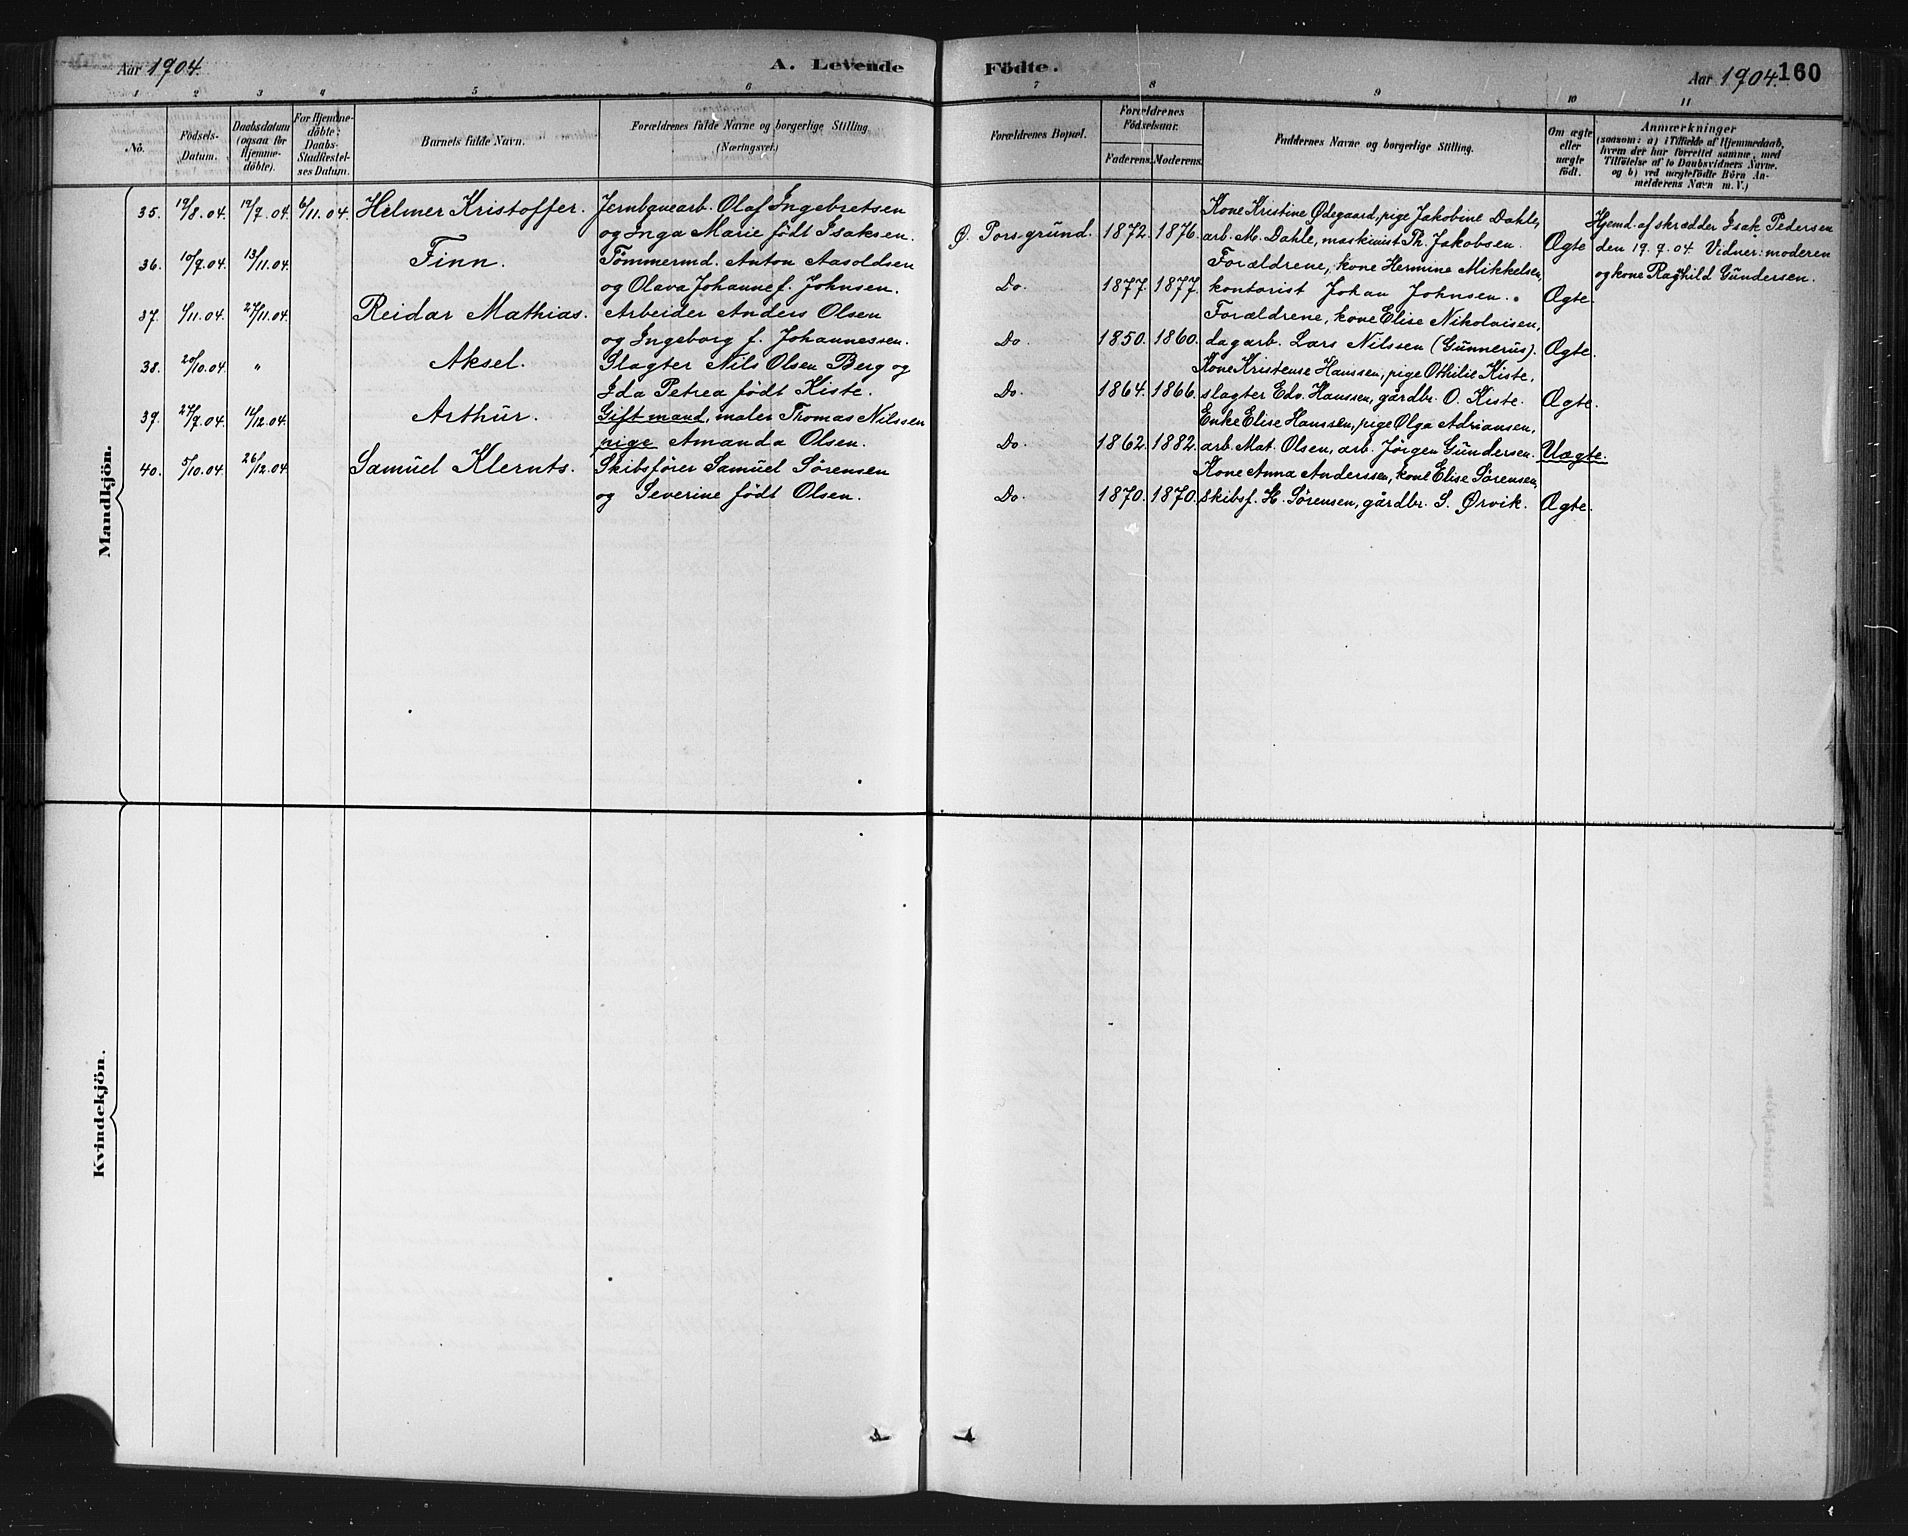 Aar 1904.
A. Levende
Födte.
Aar 1904.
160
1 2 3 4 5 6 7 8 9 10 11
No.
Födsels-
Datum.
Daabsdatum
(ogsaa for
Hjemme-
döbte).
For Hjemme-
döbte:
Daabs-
Stadfæstel-
ses Datum.
Barnets fulde Navn.
Forældrenes fulde Navne og borgerlige Stilling.
(Næringsvei.)
Forældrenes Bopæl.
Forældrenes
Födselsaar.
Faderens.
Moderens.
Faddernes Navne og borgerlige Stilling.
Om ægte
eller
uægte
født.
Anmærkninger
(saasom: a) i Tilfælde af Hjemmedaab,
hvem der har forrettet samme, med
Tilföielse af to Daabsvidners Navne.
og b) ved uægtefödte Börn An-
melderens Navn m. V.)
Mandkjön.
35. 19/8.04. 19/9.04. 6/11.04. Helmer Kristoffer. Jernbanearb. Olaf Ingebretsen
og Inga Marie født Isaksen.
Ø. Porsgrund. 1872. 1876.
Kone Kristine Ødegaard, pige Jakobine Dahle,
arb. M. Dahle, maskinist Th. Jakobsen.
Ægte
Hjemd. af skrædder Isak Pedersen
den 19.9.04 Vidner: moderen
og kone Raghild Gundersen.
36. 10/9.04. 13/11.04. Finn. Tömmermd. Anton Aasoldsen
og Olava Johanne f. Johnsen.
Do. 1877. 1877.
Forældrene, kone Hermine Mikkelsen,
kontorist Johan Johnsen.
Ægte.
37. 1/11.04. 27/11.04. Reidar Mathias. Arbeider Anders Olsen
og Ingeborg f. Johannessen.
Do. 1850. 1860.
Forældrene, kone Elise Nikolaisen,
dagarb. Lars Nilssen (Gunnerus).
Ægte.
38. 20/10.04. " Aksel. Slagter Nils Olsen Berg og
Ida Petrea født Kiste.
Do. 1864. 1866.
Kone Kristense Hanssen, pige Othilie Kiste,
slagter Edv. Hanssen, gårdbr. O. Kiste.
Ægte.
39. 27/9.04. 11/12.04. Arthur. Gift mand, maler Thomas Nilssen
pige Amanda Olsen.
Do. 1862. 1882.
Enke Elise Hanssen, pige Olga Adriansen,
arb. Mat. Olsen, arb. Jörgen Gundersen.
Uægte.
40. 5/10.04. 26/12.04 Samuel Klernts. Skibsfører Samuel Sørensen
og Severine født Olsen.
Do. 1870. 1870.
Kone Anna Anderssen, kone Elise Sørensen,
skibsf. H. Sørensen, gårdbr. S. Ørvik.
Ægte.
Kvindekjön.